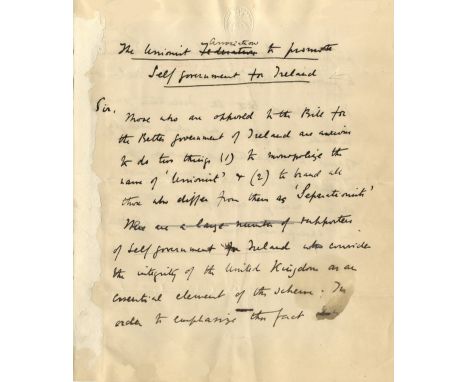 Association
The Unionist Federation to promote
Self government for Ireland
Sir,
Those who are opposed to the Bill for
the Better government of Ireland are anxious
to do two things (1) to monopolize the
name of 'Unionist' & (2) to brand all
those who differ from them as 'Separationists'
There are a large number of supporters
of Self government for Ireland who consider
the integrity of the United Kingdom as an
essential element of the scheme. In
order to emphasize this fact